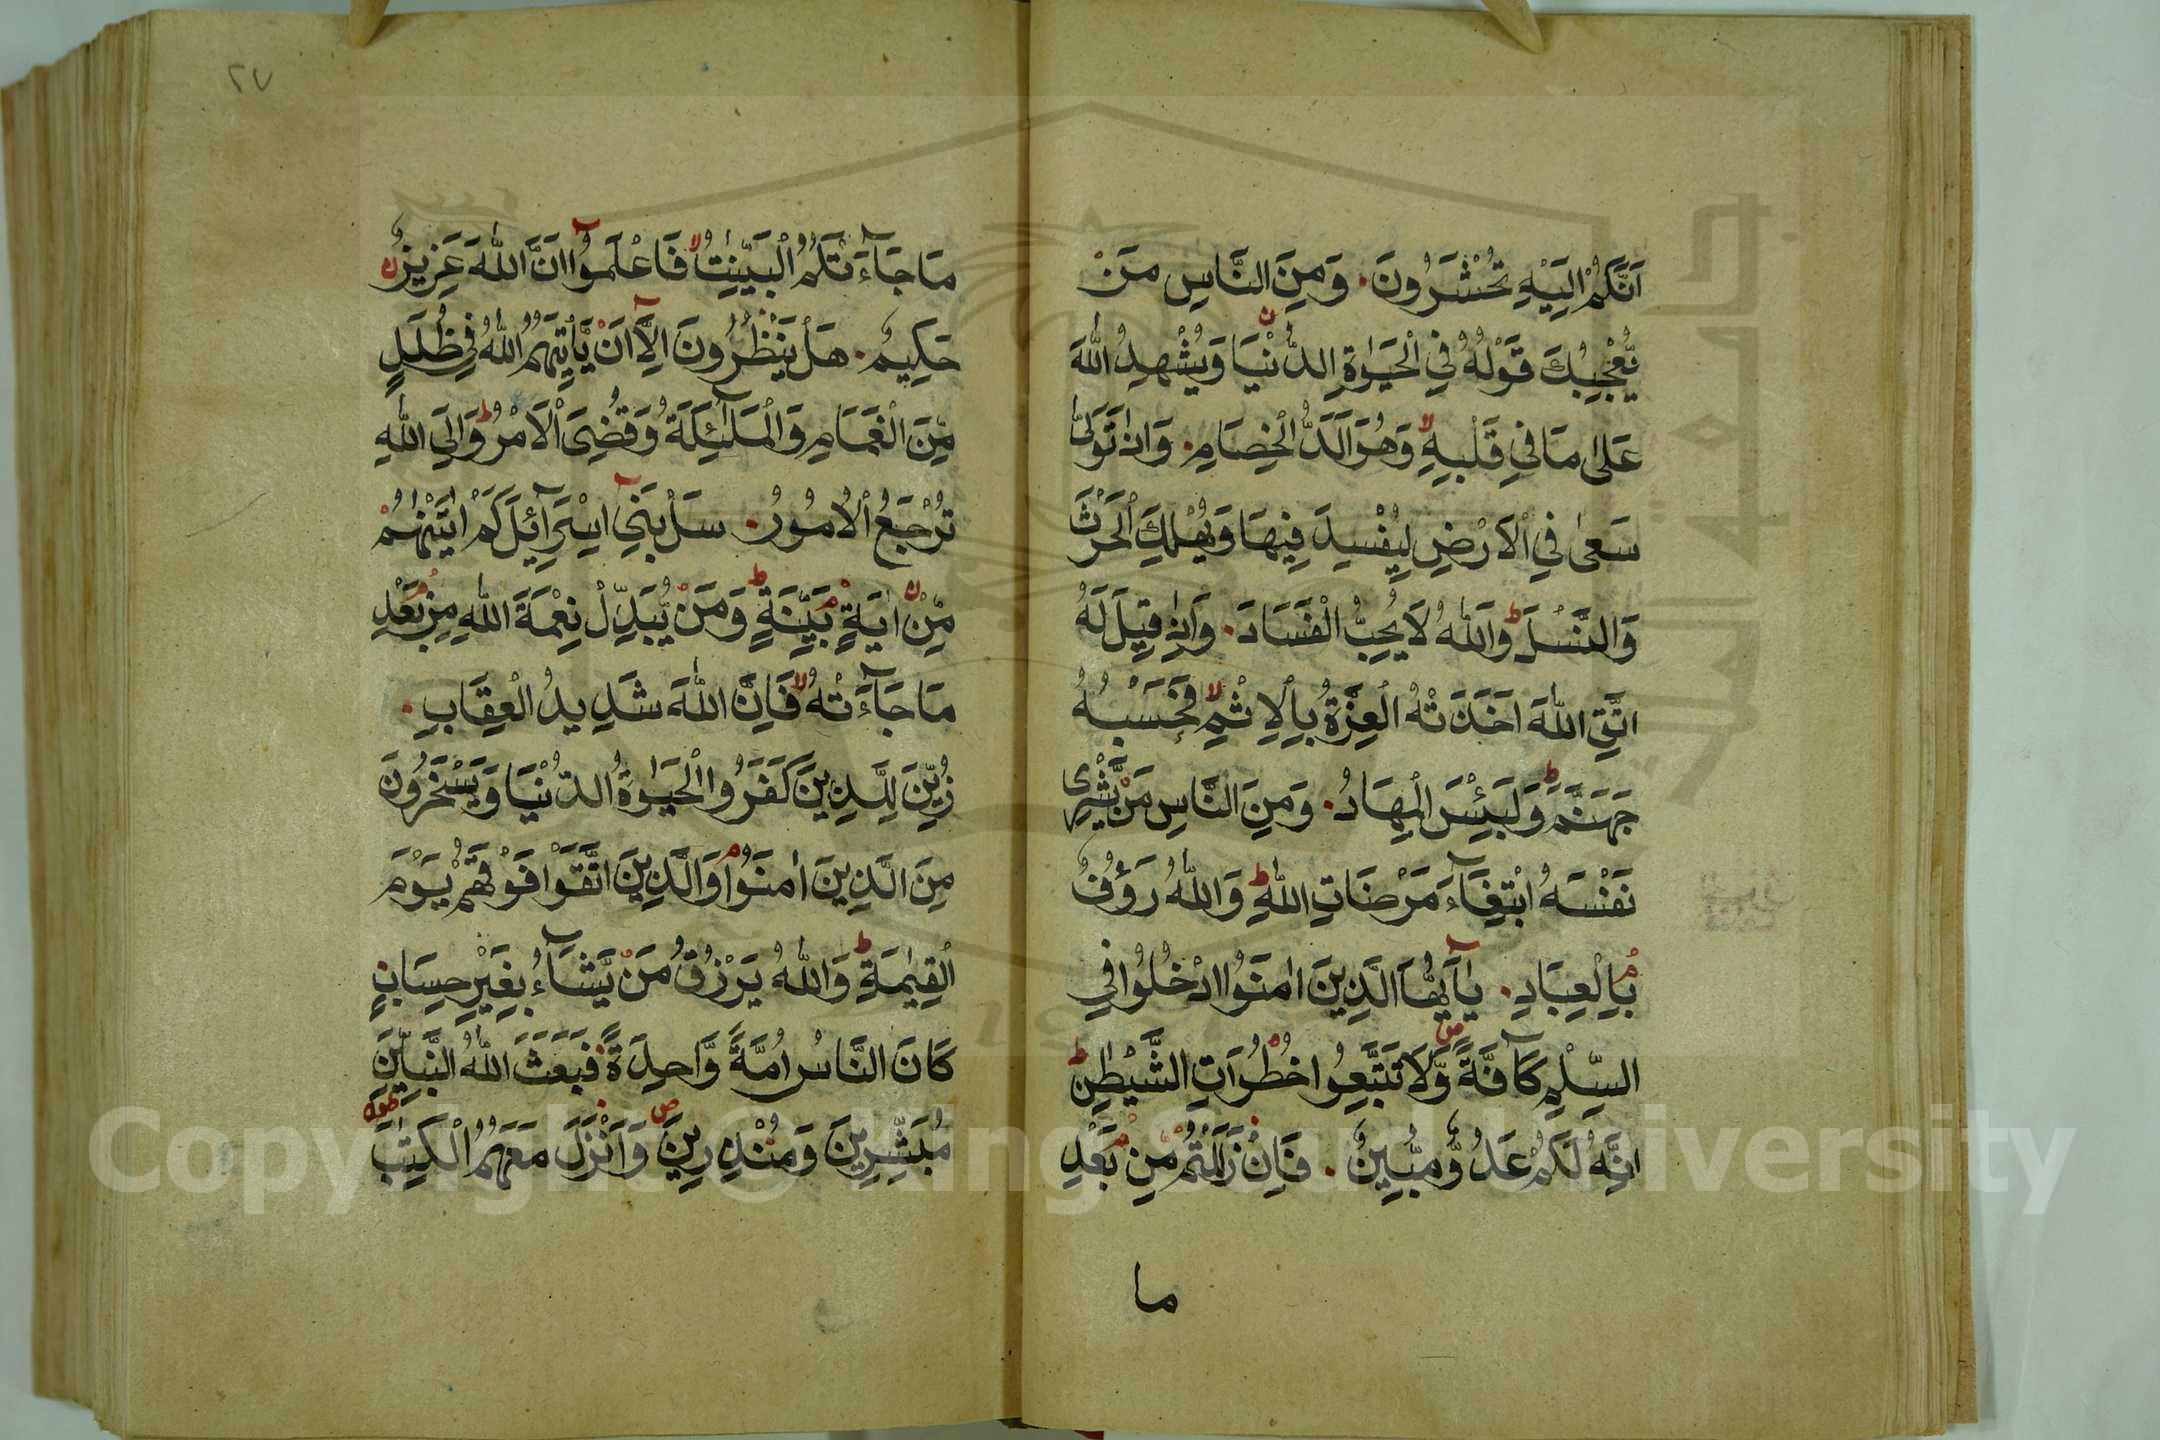 اَنَّكُمْ اِلَيْهِ تُحْشَرُونَ وَمِنَ النَّاسِ مَنْ
يُّعْجِبُكَ قَوْلُهُ فِي الْحَيٰوةِ الدُّنْيَا وَيُشْهِدُ اللّٰهَ
عَلٰى مَا فِي قَلْبِهِ وَهُوَ اَلَدُّ الْخِصَامِ وَاِذَا تَوَلّٰى
سَعٰى فِي الْاَرْضِ لِيُفْسِدَ فِيهَا وَيُهْلِكَ الْحَرْثَ
وَالنَّسْلَ وَاللّٰهُ لَا يُحِبُّ الْفَسَادَ وَاِذَا قِيلَ لَهُ
اتَّقِ اللّٰهَ اَخَذَتْهُ الْعِزَّةُ بِالْاِثْمِ فَحَسْبُهُ
جَهَنَّمُ وَلَبِئْسَ الْمِهَادُ وَمِنَ النَّاسِ مَنْ يَّشْرِى
نَفْسَهُ ابْتِغَآءَ مَرْضَاتِ اللّٰهِ وَاللّٰهُ رَؤُفٌ
بِالْعِبَادِ يٰآَيُّهَا الَّذِينَ اٰمَنُوا ادْخُلُوا فِي
السِّلْمِ كَآفَّةً وَّلَا تَتَّبِعُوا خُطُوَاتِ الشَّيْطٰنِ
اِنَّهُ لَكُمْ عَدُوٌّ مُّبِينٌ فَاِنْ زَلَلْتُمْ مِّنْ بَعْدِ
ما
٢٧
مَا جَآءَتْكُمُ الْبَيِّنٰتُ فَاعْلَمُوآ اَنَّ اللّٰهَ عَزِيزٌ
حَكِيمٌ هَلْ يَنْظُرُونَ اِلَّآ اَنْ يَّأْتِيَهُمُ اللّٰهُ فِي ظُلَلٍ
مِّنَ الْغَمَامِ وَالْمَلٰٓئِكَةُ وَقُضِىَ الْاَمْرُ وَاِلَى اللّٰهِ
تُرْجَعُ الْاُمُورُ سَلْ بَنِيٓ اِسْرَآئِلَ كَمْ اٰتَيْنٰهُمْ
مِّنْ اٰيَةٍ بَيِّنَةٍ وَمَنْ يُّبَدِّلْ نِعْمَةَ اللّٰهِ مِنْ بَعْدِ
مَا جَآءَتْهُ فَاِنَّ اللّٰهَ شَدِيدُ الْعِقَابِ
زُيِّنَ لِلَّذِينَ كَفَرُوا الْحَيٰوةُ الدُّنْيَا وَيَسْخَرُونَ
مِنَ الَّذِينَ اٰمَنُوا وَالَّذِينَ اتَّقَوْا فَوْقَهُمْ يَوْمَ
الْقِيٰمَةِ وَاللّٰهُ يَرْزُقُ مَنْ يَّشَآءُ بِغَيْرِ حِسَابٍ
كَانَ النَّاسُ اُمَّةً وَّاحِدَةً فَبَعَثَ اللّٰهُ النَّبِيّٖنَ
مُبَشِّرِينَ وَمُنْذِرِينَ وَاَنْزَلَ مَعَهُمُ الْكِتٰبَ
Copyright © King Saud University